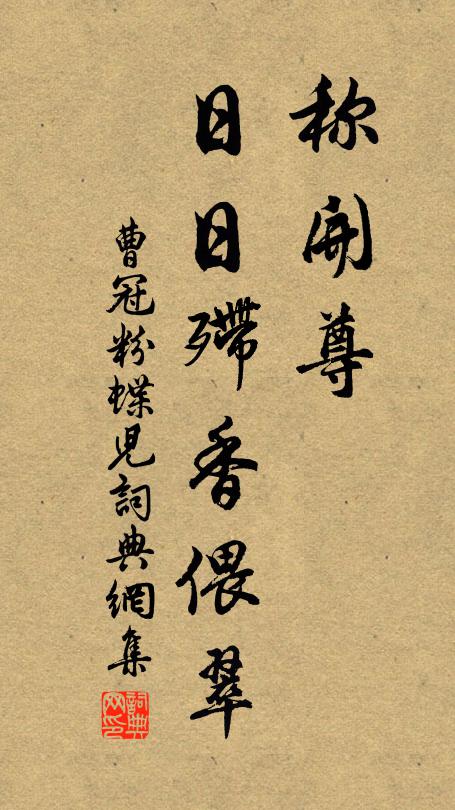 称開尊
日日殢香偎翠
曹冠粉蝶兒詞典網集
詞典
网印